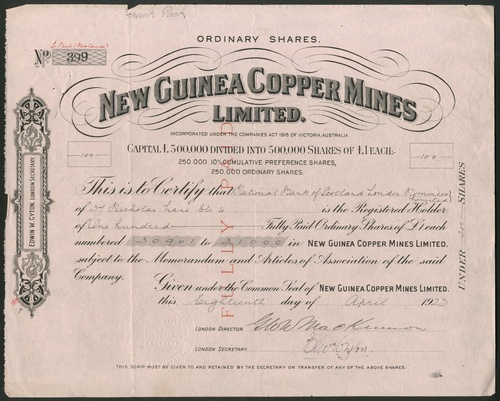 Frank Park
ORDINARY SHARES.
No 399
NEW GUINEA COPPER MINES
LIMITED.
INCORPORATED UNDER THE COMPANIES ACT 1915 OF VICTORIA, AUSTRALIA
CAPITAL £500,000 DIVIDED INTO 500,000 SHARES OF £1 EACH.
250,000 10% CUMULATIVE PREFERENCE SHARES,
250,000 ORDINARY SHARES.
100
100
This is to Certify that National Bank of Scotland London Nominees Limited
of 37 Nicholas Lane EC 4 is the Registered Holder
of One hundred Fully Paid Ordinary Shares of £1 each
numbered 30901 to 31000 in NEW GUINEA COPPER MINES LIMITED.
subject to the Memorandum and Articles of Association of the said
Company.
Given under the Common Seal of NEW GUINEA COPPER MINES LIMITED.
this Eighteenth day of April 1923
LONDON DIRECTOR Geo W MacKinnon
LONDON SECRETARY Edwin W Cyton
THIS SCRIP MUST BE GIVEN TO AND RETAINED BY THE SECRETARY ON TRANSFER OF ANY OF THE ABOVE SHARES.
EDWIN W. CYTON, LONDON SECRETARY.
FULLY PAID
UNDER SHARES